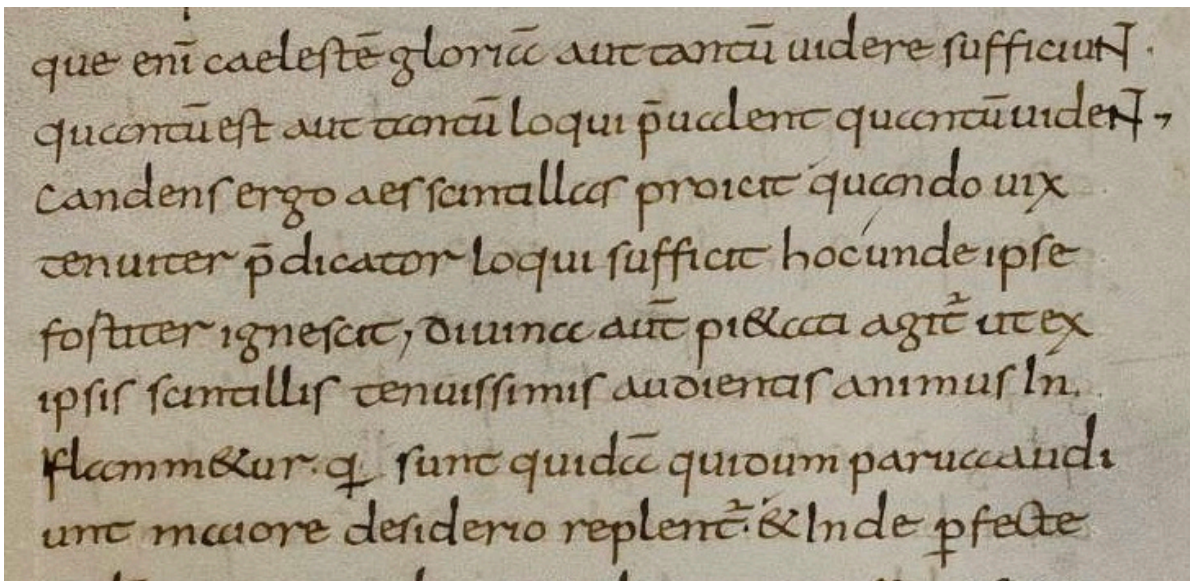 que enī caelestē gloriā aut tantū uidere sufficiunt .
quantū est aut tantū loqui p̄ualent quantū uident,
Candens ergo aes scintillas proicit quando uix
tenuiter p̄dicator loqui sufficit hoc unde ipse
fostiter ignescit, diuina aut̄ pi&as agit᷑ ut ex
ipsis scintillis tenuissimis audientis animus In
flamm&ur. q̣ sunt quidā qui dum parua audi
unt maiore desiderio replent᷑. & Inde ꝑfecte